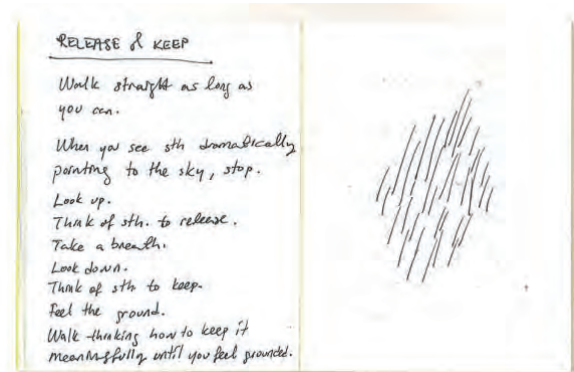 RELEASE & KEEP
Walk straight as long as
you can.
When you see sth dramatically
pointing to the sky, stop.
Look up.
Think of sth. to release.
Take a breath.
Look down.
Think of sth to keep.
Feel the ground.
Walk thinking how to keep it
meaningfully until you feel grounded.